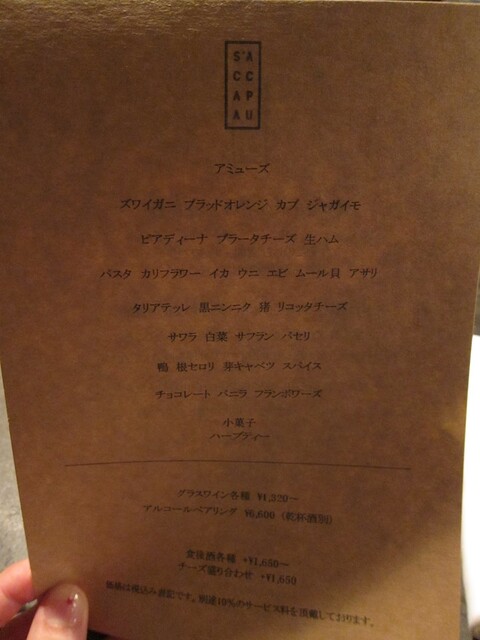 S'A
CC
CC
AP
AU
アミューズ
ズワイガニ ブラッドオレンジ カブ ジャガイモ
ピアディーナ ブラータチーズ 生ハム
パスタ カリフラワー イカ ウニ エビ ムール貝 アサリ
タリアテッレ 黒ニンニク 猪 リコッタチーズ
サワラ 白菜 サフラン パセリ
鴨 根セロリ 芽キャベツ スパイス
チョコレート バニラ フランボワーズ
小菓子
ハーブティー
グラスワイン各種 ¥1,320～
アルコールペアリング ¥6,600 (乾杯酒別)
食後酒各種 +¥1,650～
チーズ盛り合わせ +¥1,650
価格は税込み表記です。別途10%のサービス料を頂戴しております。